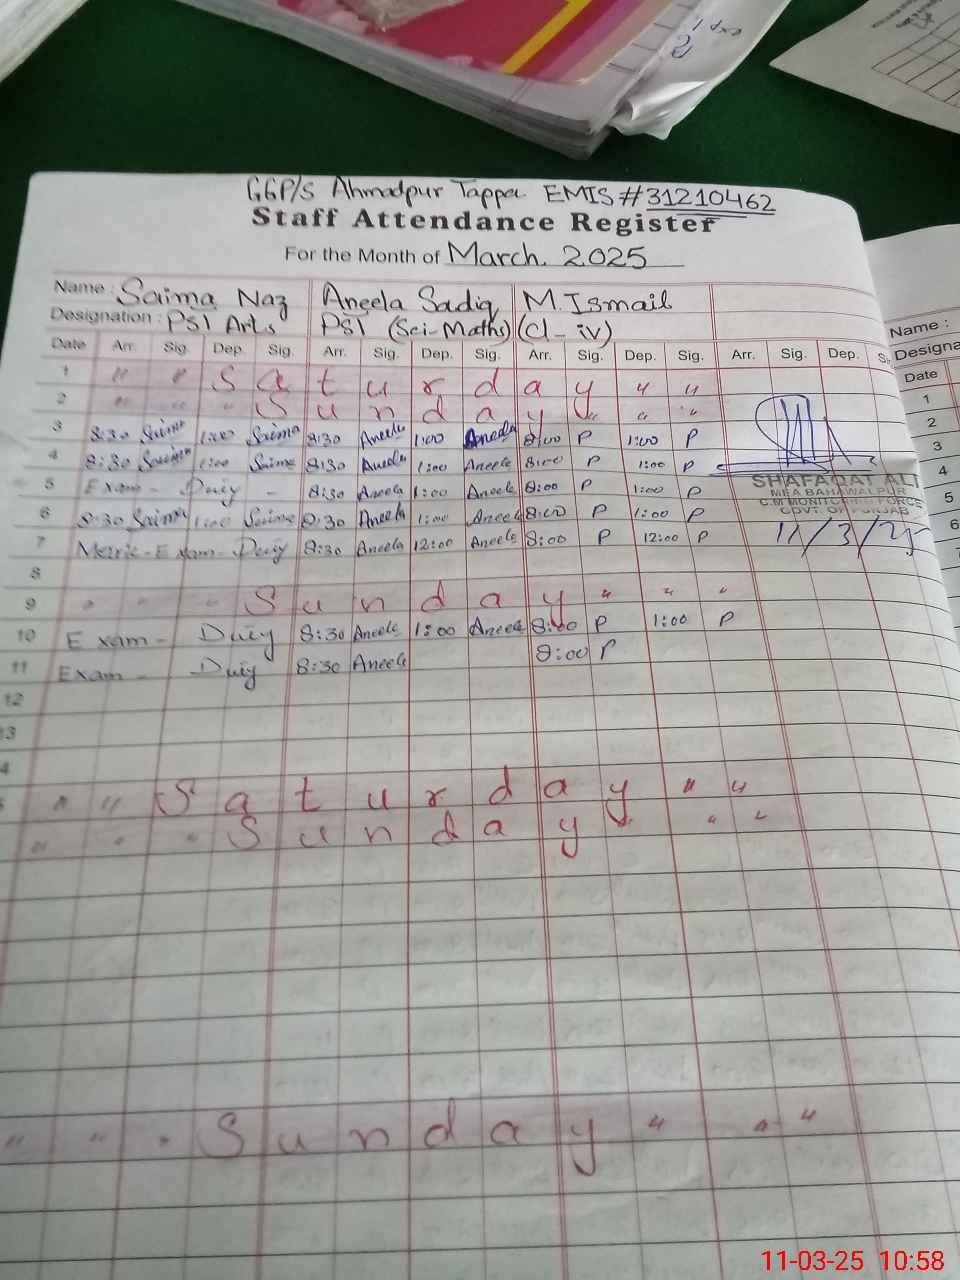 exp 1
GGP/S Ahmadpur Tappa EMIS # 31210462
Staff Attendance Register
For the Month of March. 2025
Name : Saima Naz Aneela Sadiq M. Ismail
Designation : PST Arts PST (Sci-Maths) (Cl-iv)
Name :
Designa
Date Arr. Sig. Dep. Sig. Arr. Sig. Dep. Sig. Arr. Sig. Dep. Sig. Arr. Sig. Dep. Si
Date
1 " " Saturday " "
2 " " " Sunday " " "
3 8:30 Saima 1:00 Saima 8:30 Aneela 1:00 Aneela 8:00 P 1:00 P
4 8:30 Saima 1:00 Saima 8:30 Aneela 1:00 Aneela 8:00 P 1:00 P
5 Exam - Duty - 8:30 Aneela 1:00 Aneela 8:00 P 1:00 P
6 8:30 Saima 1:00 Saima 8:30 Aneela 1:00 Aneela 8:00 P 1:00 P
7 Metric - Exam - Duty 8:30 Aneela 12:00 Aneela 8:00 P 12:00 P
SHAFAQAT ALI
MEA BAHAWALPUR
C.M MONITORING FORCE
GOVT. OF PUNJAB
11/3/25
8
9 " " " Sunday " " "
10 Exam - Duty 8:30 Aneela 1:00 Aneela 8:00 P 1:00 P
11 Exam - Duty 8:30 Aneela 8:00 P
12
3
4
" " Saturday " "
" " " Sunday " "
" " " Sunday " " "
1
2
3
4
5
6
11-03-25 10:58